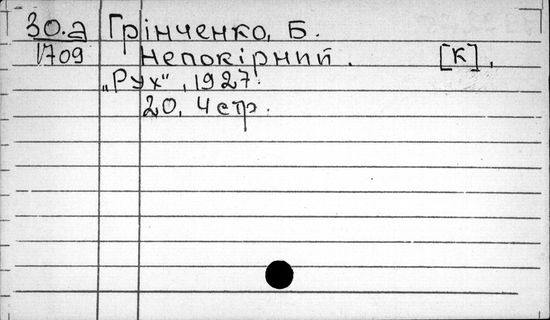 30.а Грінченко, Б.
1709 Непокірний. [К].
„Рух“, 1927.
20, 4 стр.